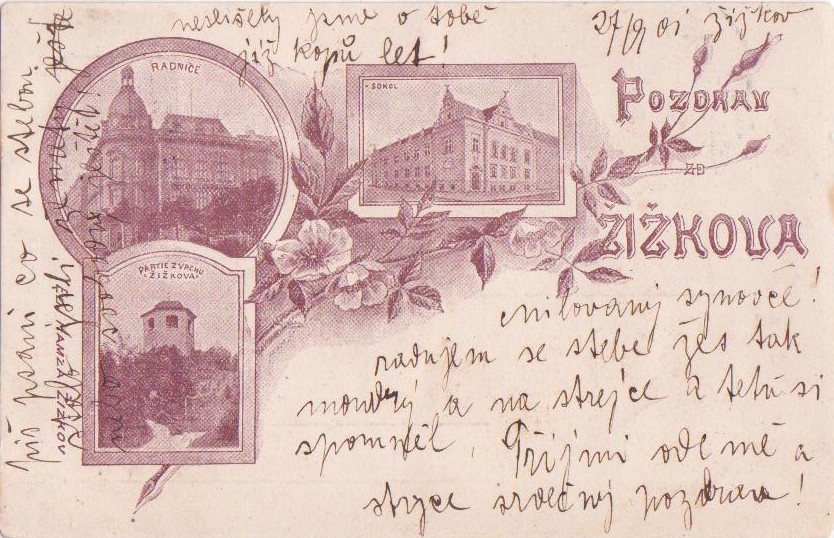 neslišely jsme o tobě
již kopů let!
27/9 01 Žižkov
RADNICE
SOKOL
POZDRAV
ZE
ŽIŽKOVA
PARTIE Z VRCHU
"ŽIŽKOVA"
milovaný synovče!
radujem se stebe žes tak
moudrý a na strejce a tetu si
spomněl, Přijmi ode mě a
stryce srdečný pozdrav!
piš psaní co se stebou
ŽIŽKOV